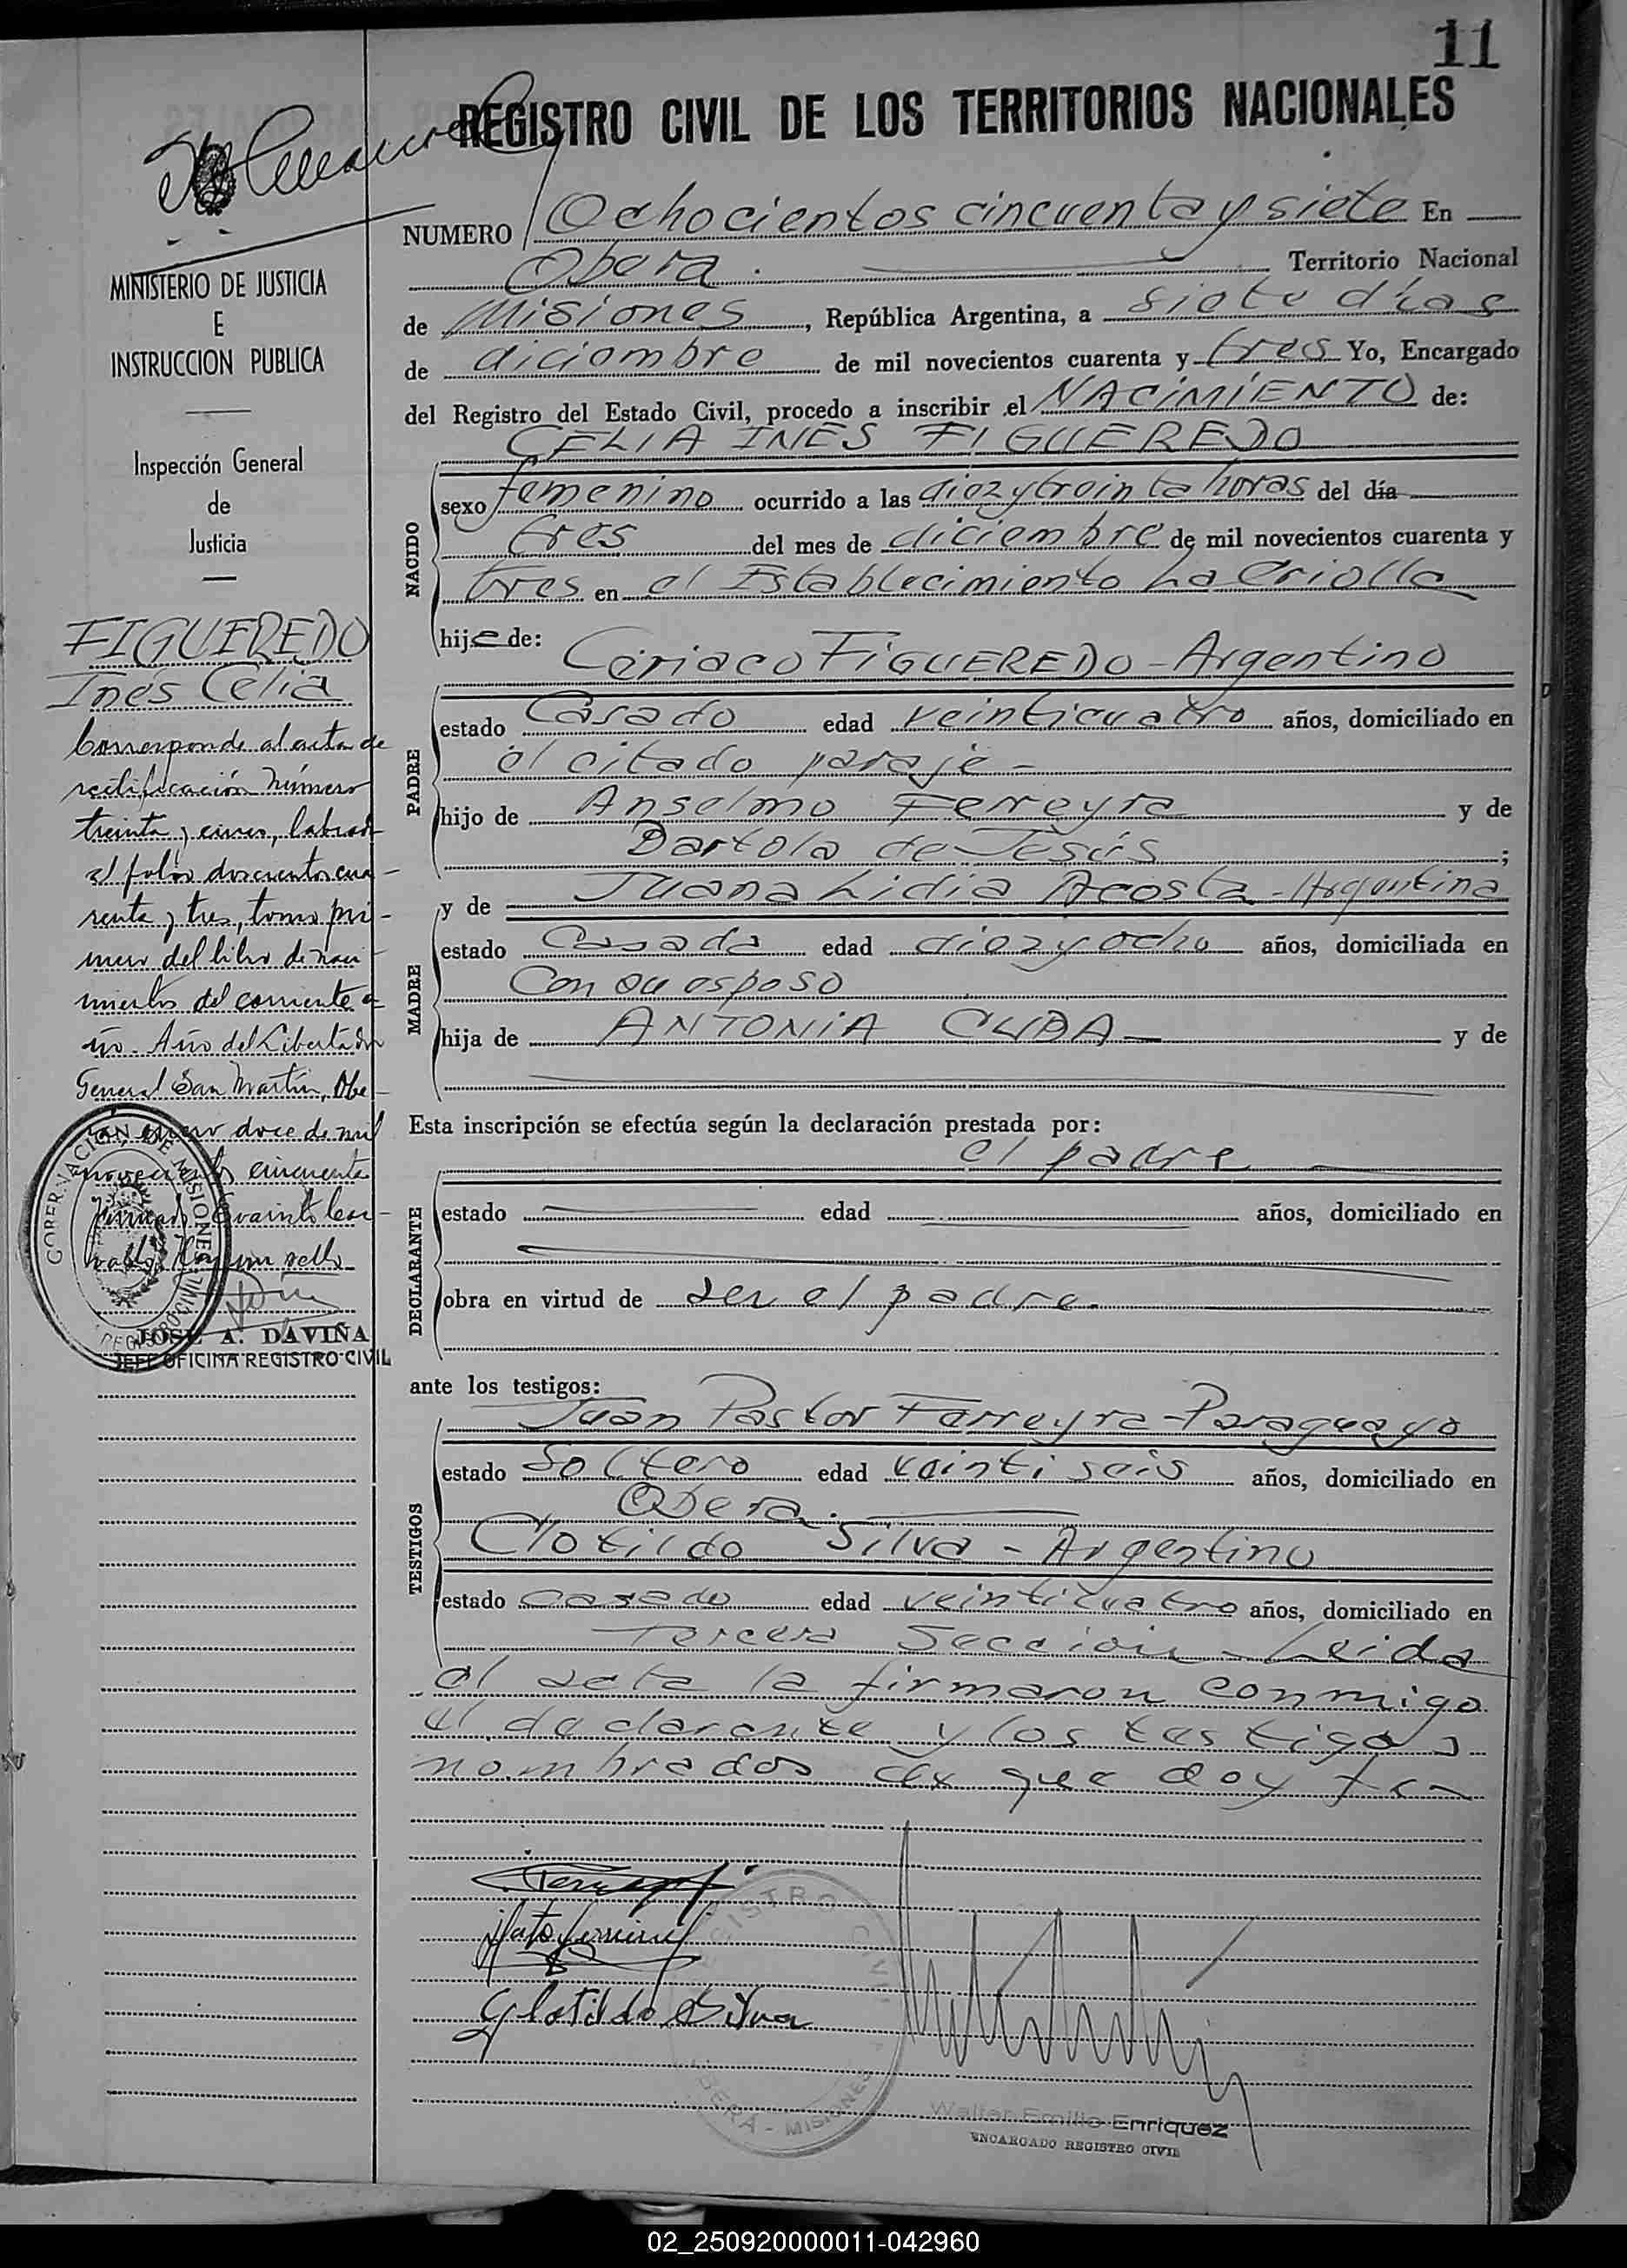 11
REGISTRO CIVIL DE LOS TERRITORIOS NACIONALES
MINISTERIO DE JUSTICIA
E
INSTRUCCION PUBLICA
Inspección General
de
Justicia
FIGUEREDO
Inés Celia
Corresponde al acta de
rectificación número
treinta y cinco, labrada
al folio doscientos cua-
renta y tres, tomo pri-
mero del libro de naci
mientos del corriente a
ño. Año del Libertador
General San Martín, Obe-
rá, enero doce de mil
novecientos cincuenta
sello
GOBERNACION DE MISIONES
REGISTRO CIVIL
JOSE A. DAVIÑA
JEFE OFICINA REGISTRO CIVIL
NUMERO Ochocientos cincuenta y siete En
Obera. Territorio Nacional
de Misiones, República Argentina, a siete dias
de diciembre de mil novecientos cuarenta y tres Yo, Encargado
del Registro del Estado Civil, procedo a inscribir el NACIMIENTO de:
CELIA INES FIGUEREDO
NACIDO
sexo femenino ocurrido a las diez y treinta horas del día
tres del mes de diciembre de mil novecientos cuarenta y
tres en el Establecimiento La Criolla
hija de:
Ciriaco FIGUEREDO - Argentino
PADRE
estado Casado edad veinticuatro años, domiciliado en
el citado paraje -
hijo de Anselmo Ferreyra y de
Bartola de Jesús ;
y de Juana Lidia Acosta - Argentina
MADRE
estado Casada edad diez y ocho años, domiciliada en
Con su esposo
hija de ANTONIA CUBA y de
Esta inscripción se efectúa según la declaración prestada por:
el padre
DECLARANTE
estado edad años, domiciliado en
obra en virtud de ser el padre.
ante los testigos:
Juan Pastor Ferreyra - Paraguayo
TESTIGOS
estado Soltero edad veinti seis años, domiciliado en
Obera.
Clotildo Silva - Argentino
estado casado edad veinticuatro años, domiciliado en
Tercera Seccion - Leida
el acta la firmaron conmigo
el declarante y los testigos
nombrados de que doy fe -
Clotildo Silva
REGISTRO CIVIL
OBERA - MISIONES
Walter Emilio Enriquez
ENCARGADO REGISTRO CIVIL
02_250920000011-042960